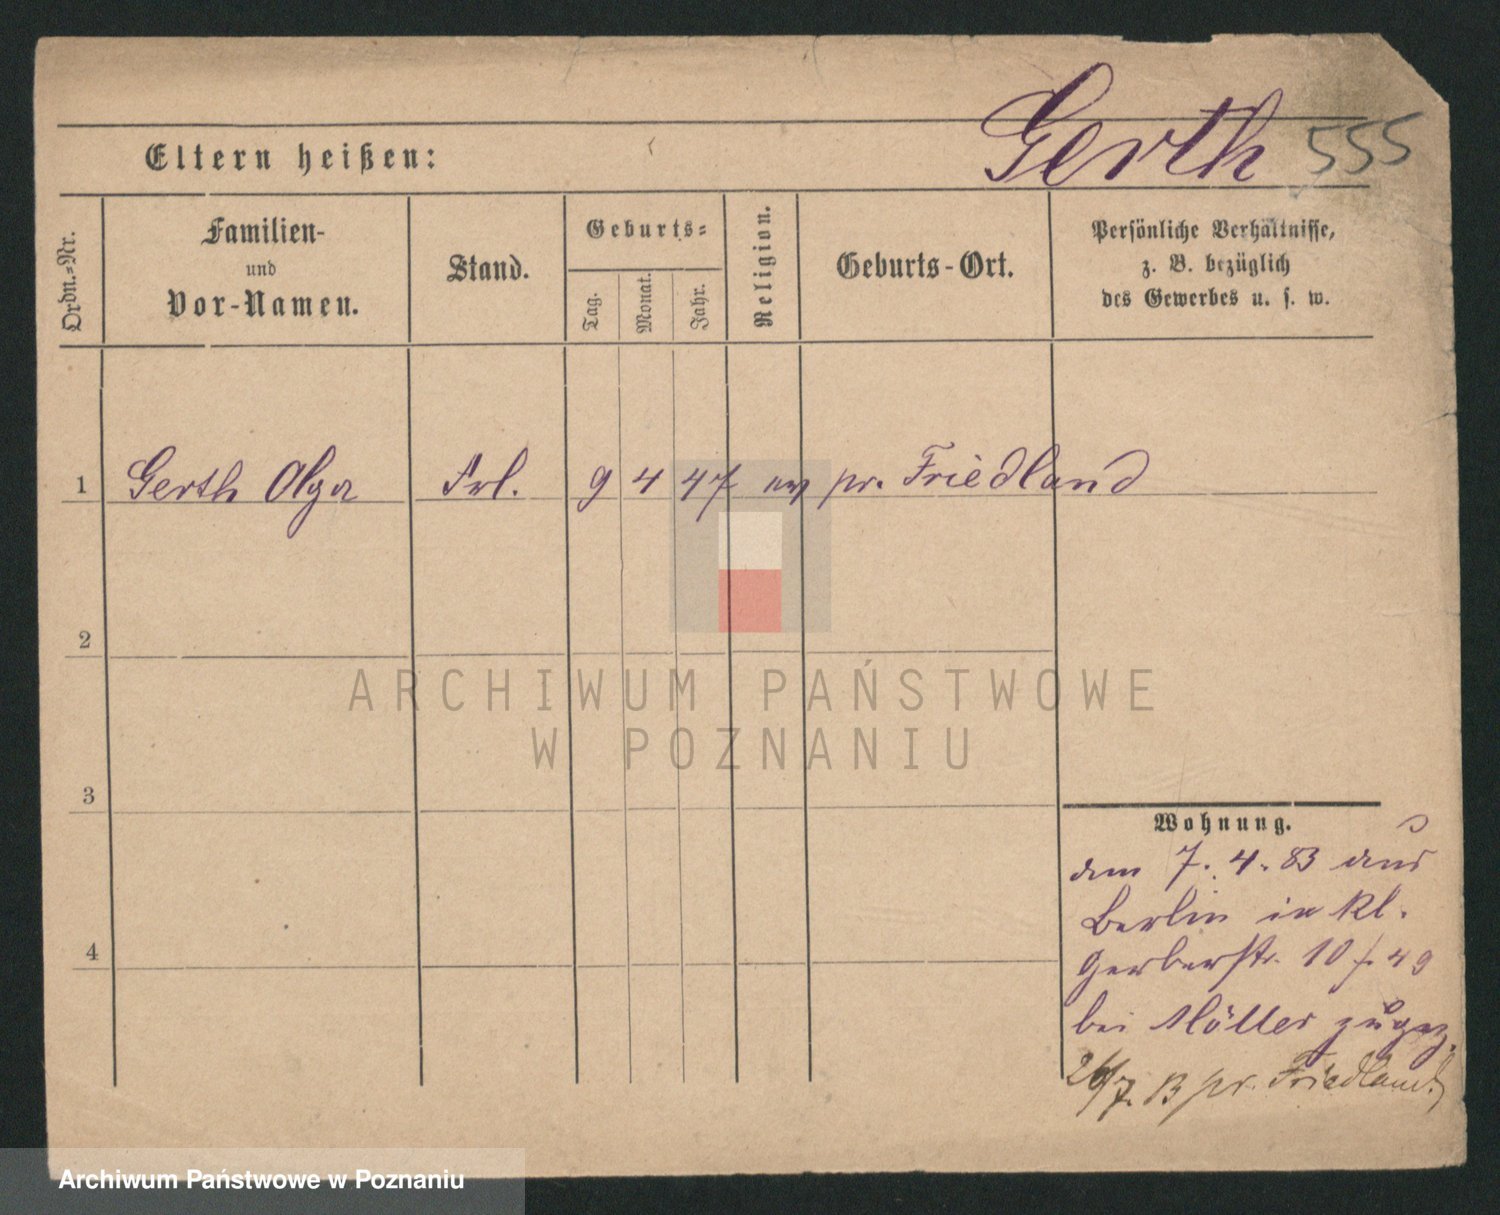 Gerth 555
Eltern heißen:
Ordn.-Nr.
Familien-
und
Vor-Namen.
Stand.
Geburts-
Tag.
Monat.
Jahr.
Religion.
Geburts-Ort.
Persönliche Verhältnisse,
z. B. bezüglich
des Gewerbes u. s. w.
1 Gerth Olga Frl. 9 4 47 ev pr. Friedland
2
3
4
Wohnung.
den 7. 4. 83 aus
Berlin in kl.
Gerberstr. 10 f. 49
bei Möller zugez.
26/7. B pr. Friedland
ARCHIWUM PAŃSTWOWE
W POZNANIU
Archiwum Państwowe w Poznaniu